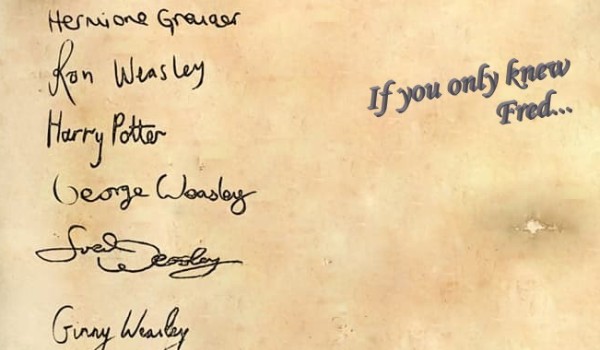 Hermione Granger
Ron Weasley
Harry Potter
George Weasley
Fred Weasley
Ginny Weasley
If you only knew
Fred...